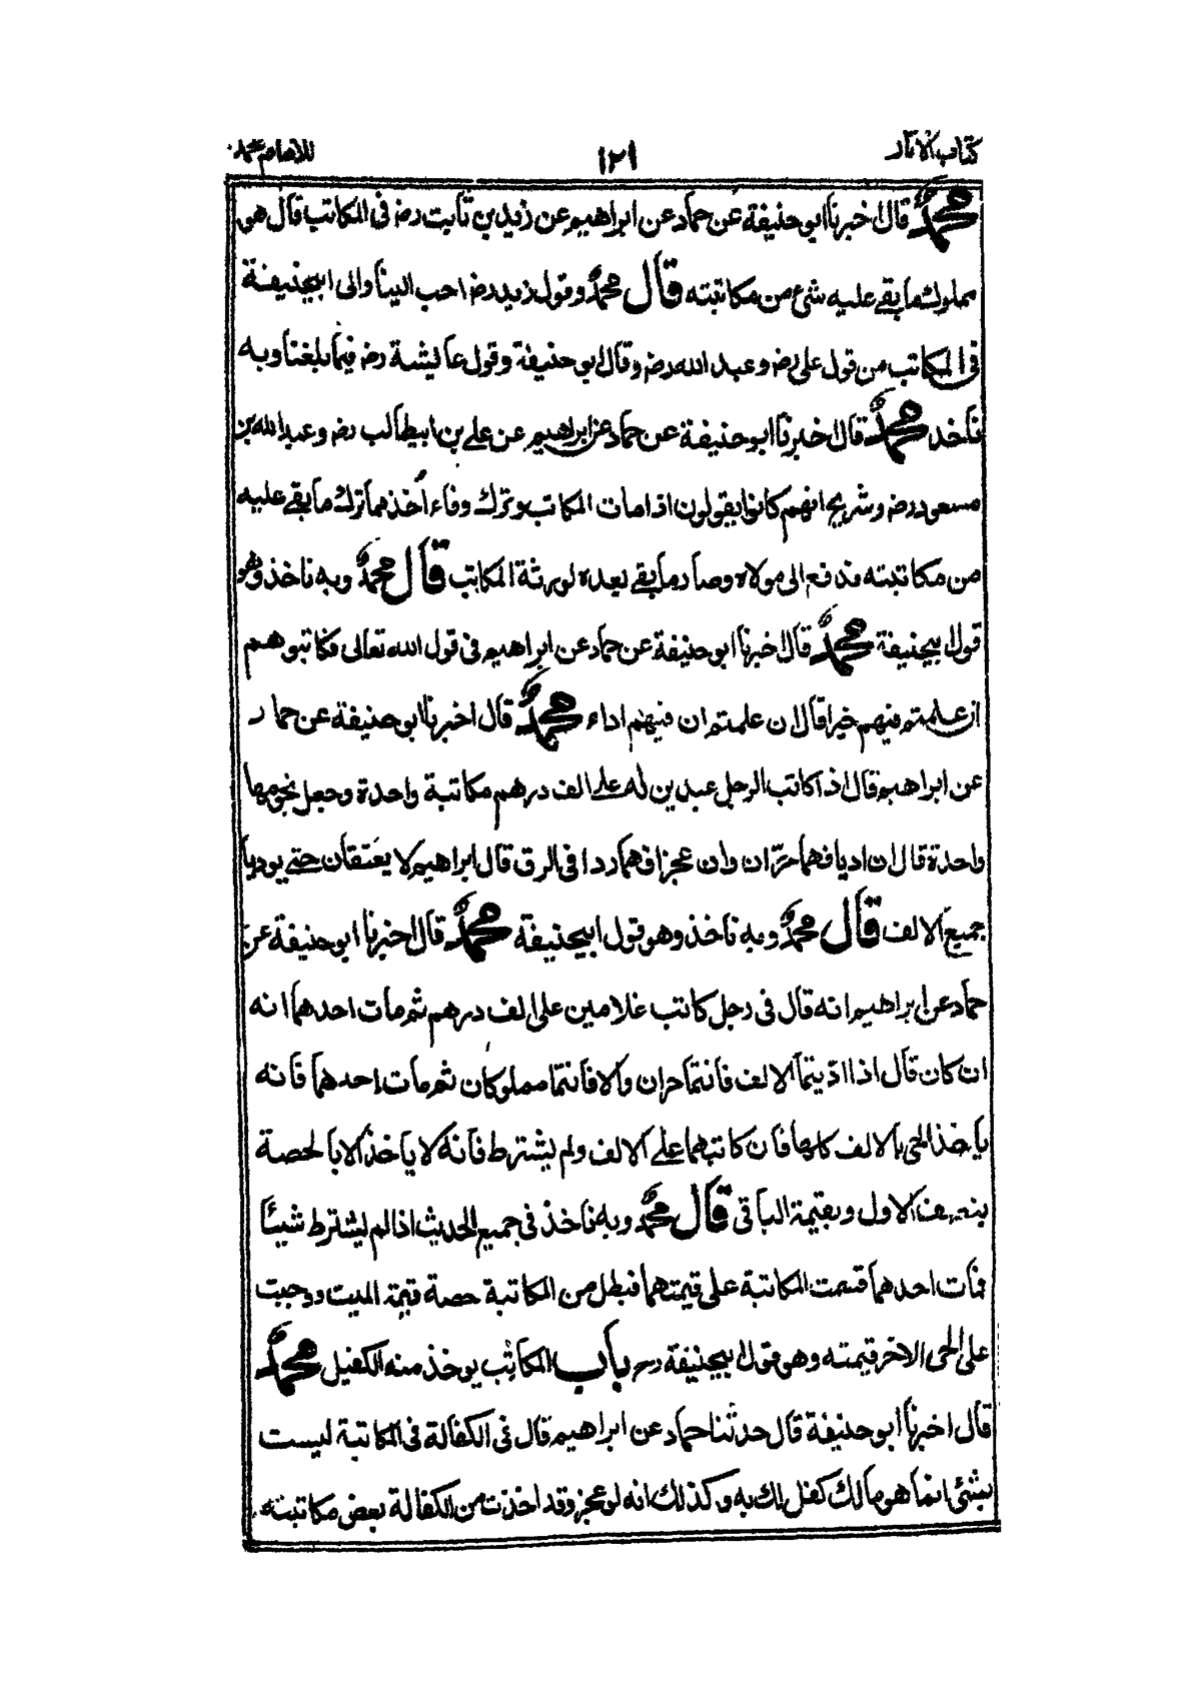 كتاب الاثار
١٢١
للامام محمد
محمد قال اخبرنا ابو حنيفة عن حماد عن ابراهيم عن زيد بن ثابت رضـ فى المكاتب قال هو
مملوك ما بقے عليه شئ من مكاتبته قال محمد وقول زيد رضـ احب الينا والى ابيحنيفة
فى المكاتب من قول على رضـ وعبد الله رضـ وقال ابو حنيفة وقول عائيشة رضـ فيما بلغنا وبه
ناخذ محمد قال اخبرنا ابو حنيفة عن حماد عن ابراهيم عن علے بن ابيطالب رضـ وعبد الله بن
مسعود رضـ وشريح انهم كانوا يقولون اذا مات المكاتب وترك وفاء اُخذ مما ترك ما بقے عليه
من مكاتبته فدفع الى مولاه وصار ما بقے بعده لورثة المكاتب قال محمد وبه ناخذ وهو
قول ابيحنيفة محمد قال اخبرنا ابو حنيفة عن حماد عن ابراهيم فى قول الله تعالى فكاتبوهم
ان علمتم فيهم خيرا قال ان علمتم ان فيهم اداء محمد قال اخبرنا ابو حنيفة عن حماد
عن ابراهيم قال اذا كاتب الرجل عبدين له على الف درهم مكاتبة واحدة وجعل نجومها
واحدة قال ان اديا فهما حرّان وان عجزا فهما ردا فى الرق قال ابراهيم لا يعتقان حتے يوديا
جميع الالف قال محمد وبه ناخذ وهو قول ابيحنيفة محمد قال اخبرنا ابو حنيفة عن
حماد عن ابراهيم انه قال فى رجل كاتب غلامين على الف درهم ثم مات احدهما انه
ان كان قال اذا ادّيتما الالف فانتما حران والا فانتما مملوكان ثم مات احدهما فانه
ياخذ الحى بالالف كلها فان كاتبهما علے الالف ولم يشترط فانه لا ياخذ الا بالحصة
بنصف الاول وبقيمة الباقى قال محمد وبه ناخذ فى جميع الحديث اذا لم يشترط شيئا
فمات احدهما قسمت المكاتبة على قيمتهما فبطل من المكاتبة حصة قيمة الميت ووجبت
على الحى الاخر قيمته وهو قول ابيحنيفة رح باب المكاتب يوخذ منه الكفيل محمد
قال اخبرنا ابو حنيفة قال حدثنا حماد عن ابراهيم قال فى الكفالة فى المكاتبة ليست
بشئ انما هو مالك كفل لك به وكذلك انه لو عجز وقد اخذت من الكفالة بعض مكاتبته